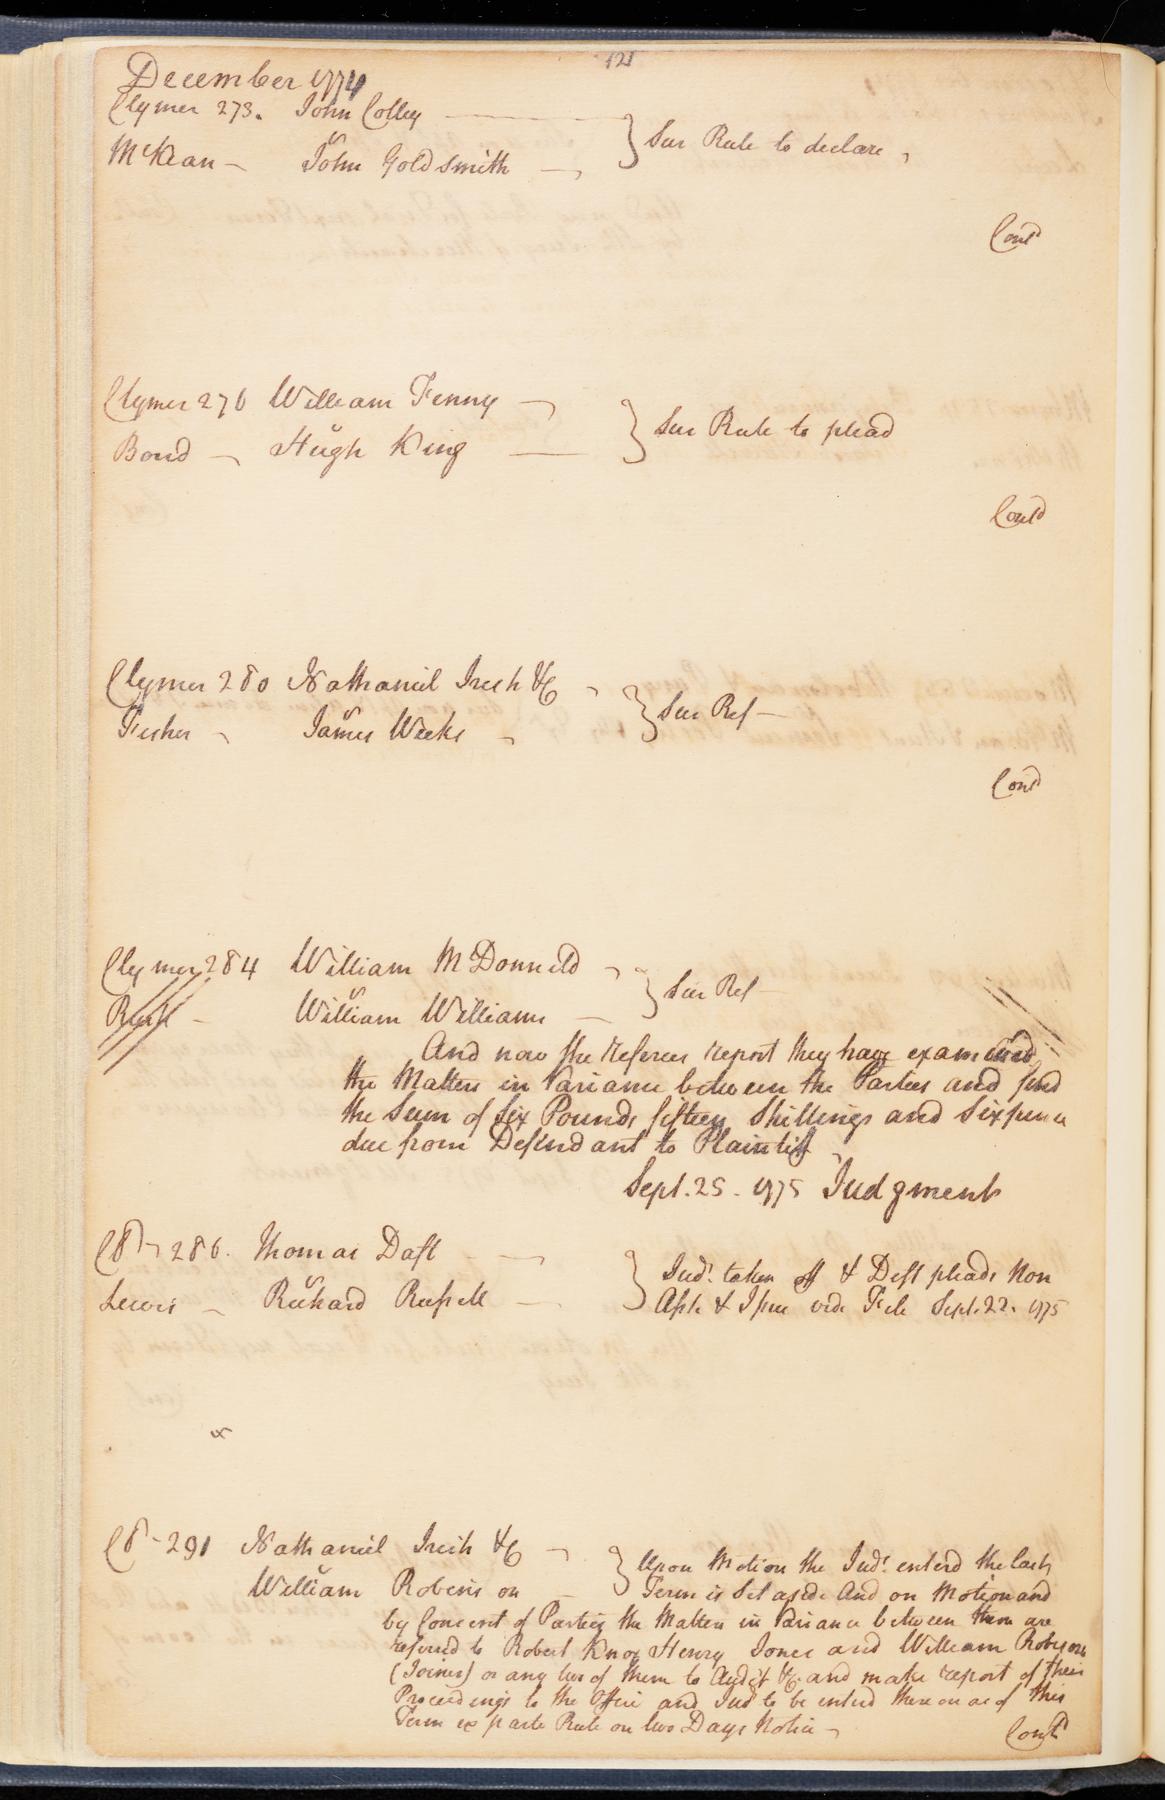 121
December 1774
Clymer 273. John Colley
McKean - John Goldsmith
v
Sur Rule to declare
Cont'd
Clymer 276 William Fenny
v
Bond - Hugh King
Sur Rule to plead
Cont'd
Clymer 280 Nathaniel Irish &c
v
Fisher - James Weeks
Sur Ref -
Cont'd
Clymer 284 William McDonneld
v
Rush - William Williams
Sur Ref -
And now the referees report they have examined
the Matters in Variance between the Parties and find
the Sum of Six Pounds fifteen Shillings and Sixpence
due from Defendant to Plaintiff
Sept. 25. 1775 Judgment
286. Thomas Daft
v
Lewis - Richard Russell
Jud.t taken off & Deft pleads Non
Assts & Issue vide File Sept. 22. 1775
291 Nathaniel Irish &c
v
William Robinson
Upon Motion the Jud.t enterd the last
Term is Set aside And on Motion and
by Consent of Parties the Matters in Variance between them are
referred to Robert Knox Henry Jones and William Robinson
(Joiner) or any two of them to Audit &c and make report of their
Proceedings to the Office and Jud.t to be enterd thereon as of this
Term ex parte Rule on two Days Notice
Cont'd